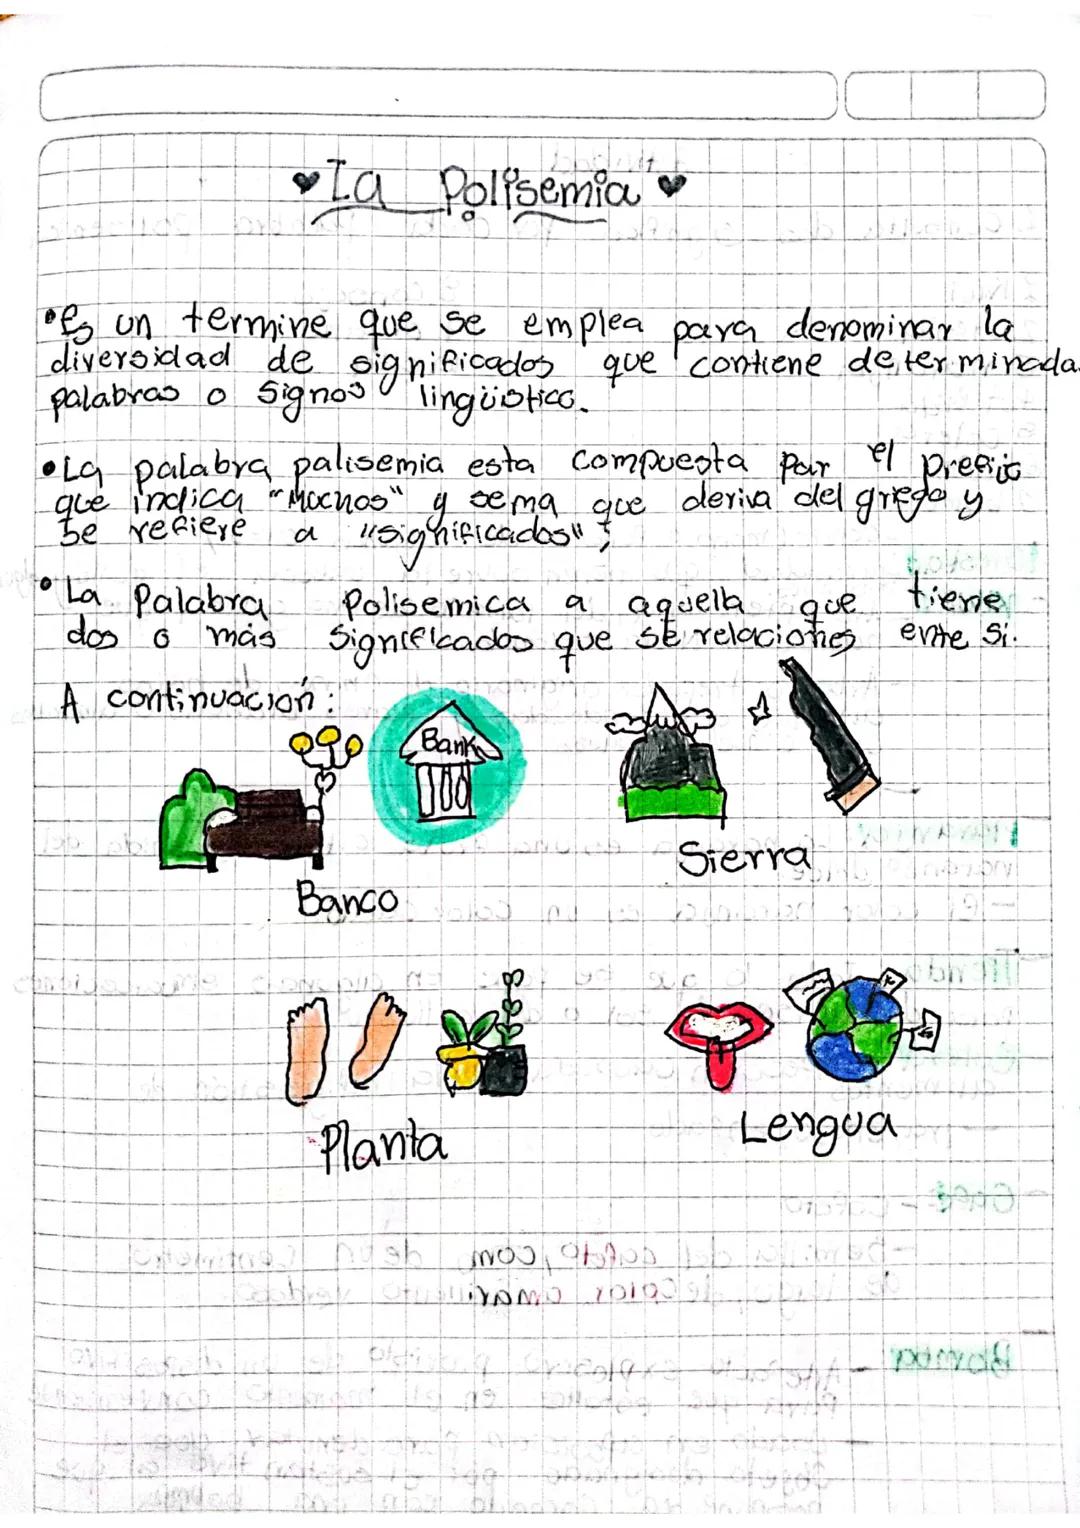 La Polisemia
•Es un termine que se emplea para denominar la
diversidad de significados que contiene determinada
palabras o signos lingüistico.
•La palabra palisemia esta compuesta par el prefijo
que indica "Muchos" y sema que deriva del griego y
se refiere a "significados";
•La Palabra Polisemica a aquella que tiene
dos o más significados que se relaciones ente si.
A continuación:
Bank
Banco
Sierra
Planta
Lengua